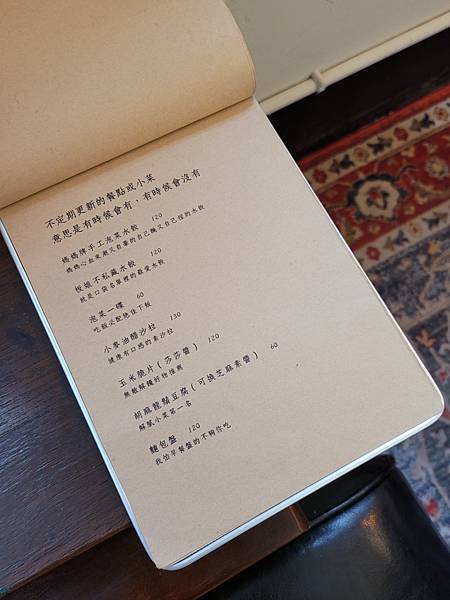 不定期更新的餐點或小菜
意思是有時候會有，有時候會沒有
媽媽牌手工泡菜水餃 120
媽媽心血來潮又自薦的自己醃又自己捏的水餃
板娘不私藏水餃 120
就是口袋名單裡的最愛水餃
泡菜一碟 60
吃飯必配絕佳下飯
小麥油醋沙拉 130
健康有口感的素沙拉
玉米脆片(莎莎醬) 120
無敵解饞好物推薦
胡麻龍鬚豆腐(可換芝麻素醬) 60
解膩小菜第一名
麵包盤 120
我怕早餐盤的不夠你吃